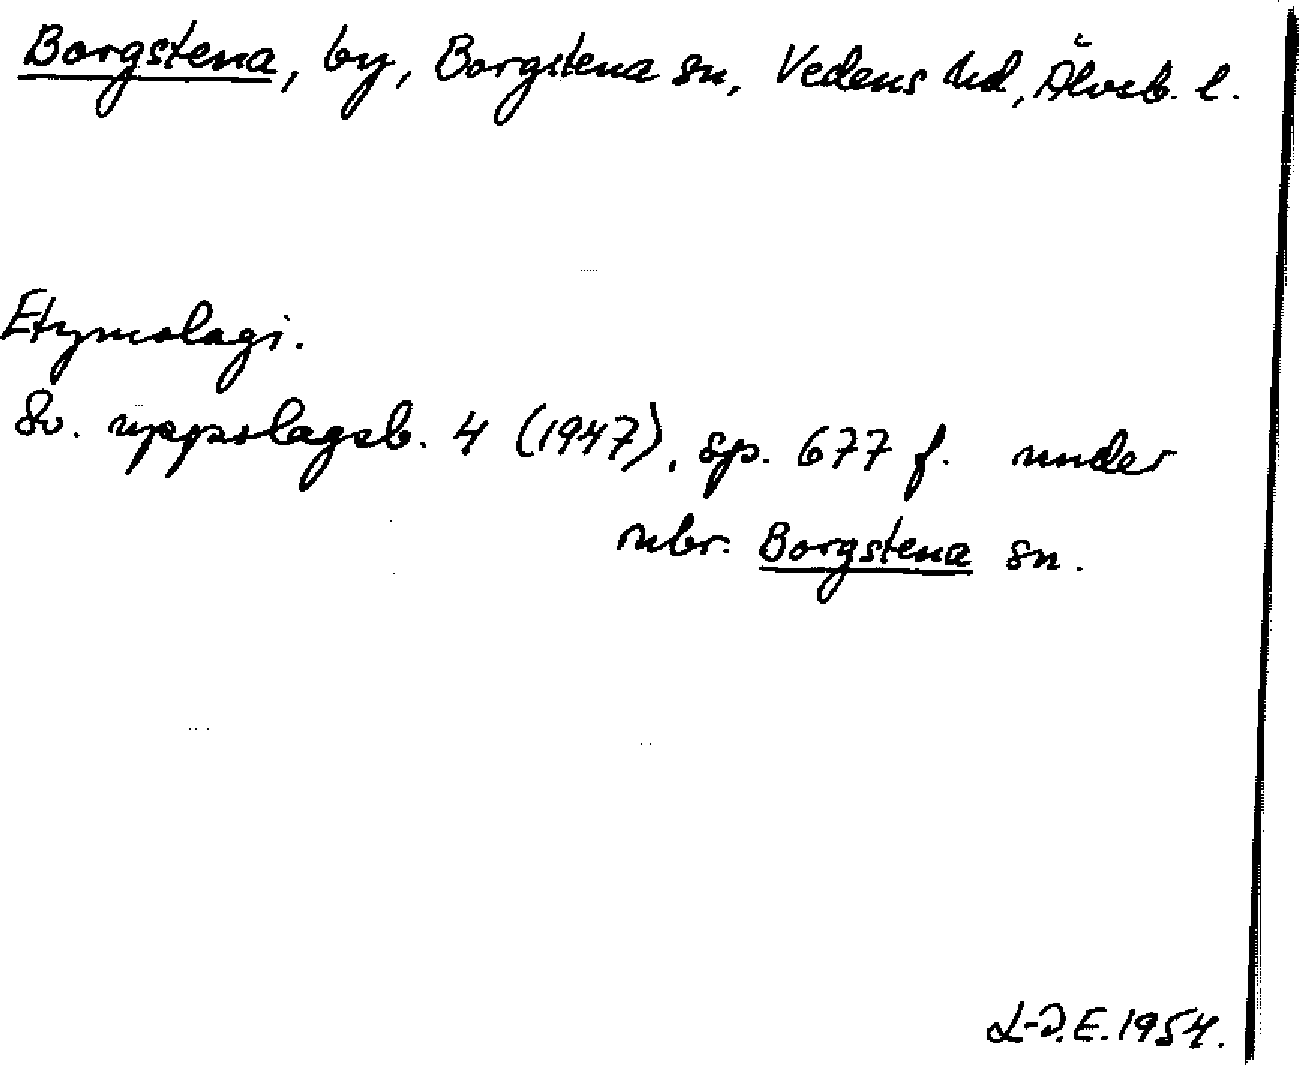 Borgstena, by, Borgstena sn, Vedens hd, Älvsb. l.
Etymologi.
Sv. uppslagsb. 4 (1947), sp. 677 f. under
rubr. Borgstena sn.
L-I.E. 1954.